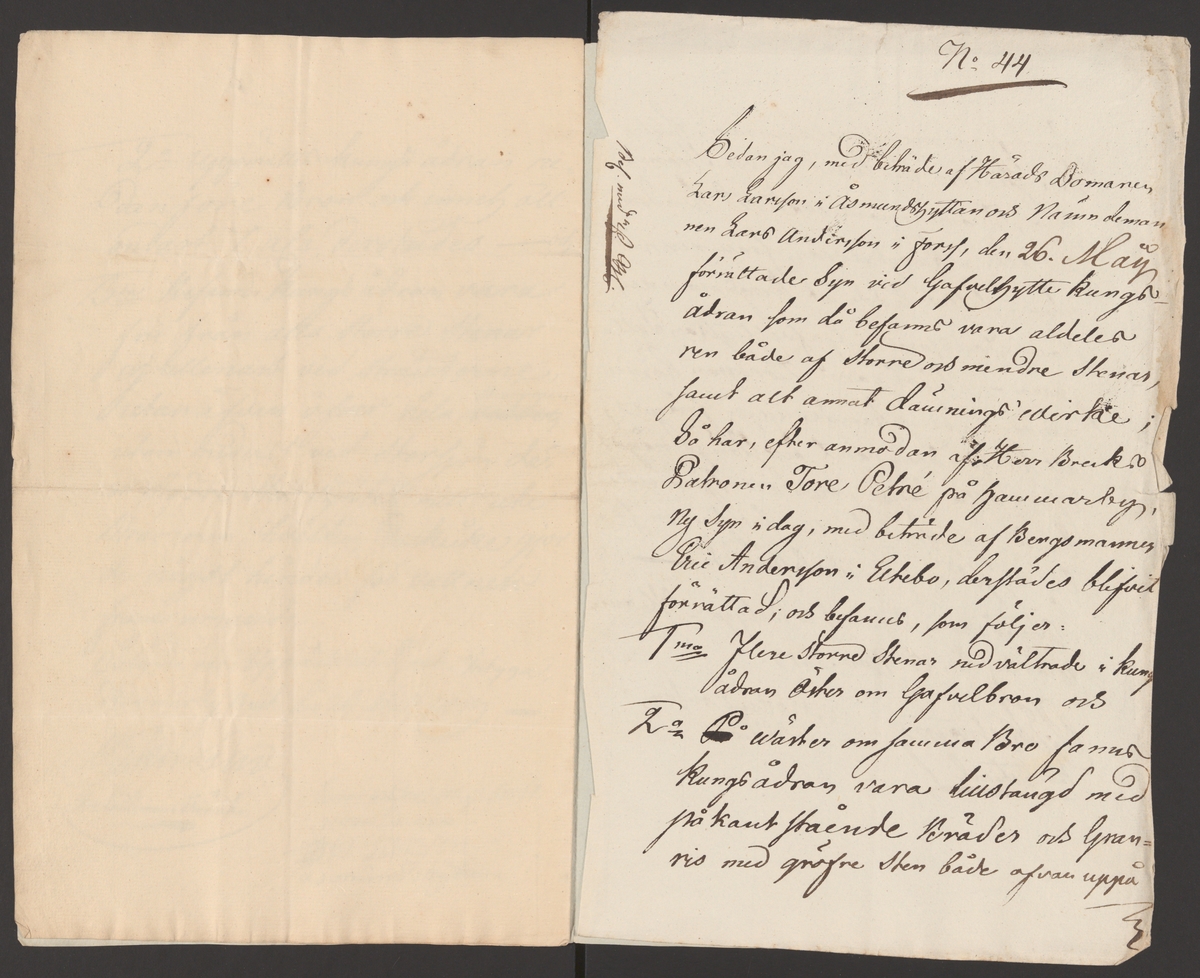 No 44
Sedan jag, med biträde af Härads Domaren
Lars Larsson i Åsmundshyttan och Nämndeman
nen Lars Andersson i Forss, den 26. Maÿ
förrättade Syn vid Gafvelhytte kungs-
ådran som då befanns vara aldeles
ren både af större och mindre Stenar,
samt alt annat dämnings wirke;
Så har, efter anmodan af Herr Bruks
Patronen Tore Petré på Hammarby,
ny Syn i dag, med biträde af Bergsmannen
Eric Andersson i Elfebo, derstädes blifvit
förrättad; och befanns, som följer:
1mo Flere större Stenar nedvältrade i kungs
ådran öster om Gafvelbron och
2o På wäster om samma Bro fanns
kungsådran vara lius med
på kant stående Bräder och Gran=
ris med gröfre Sten både ofvan uppå